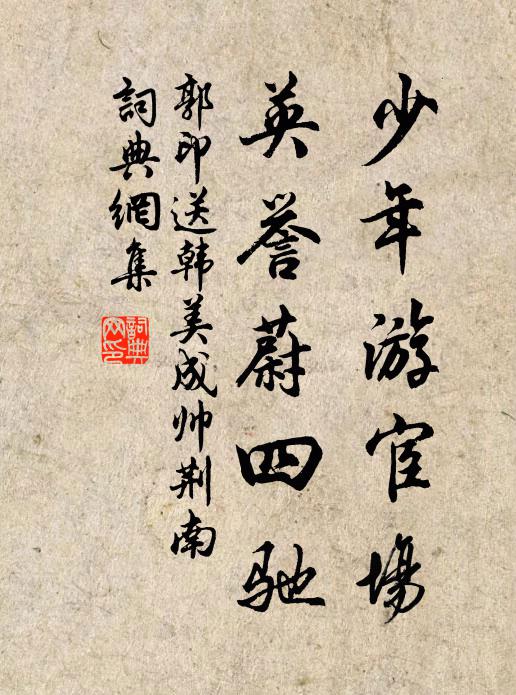 少年游宦場
英誉蔚四驰
郭印送韩美成帅荆南
詞典網集
詞典
网印